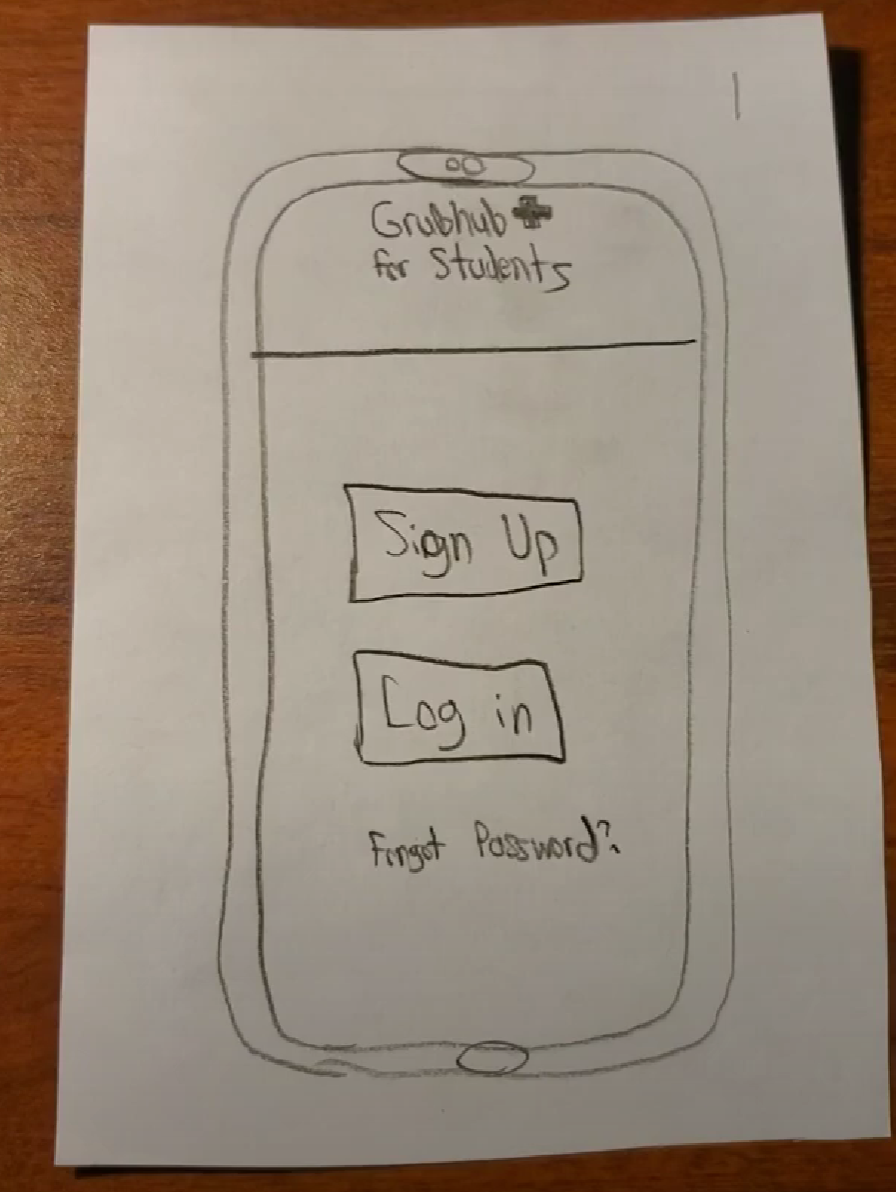 1
Grubhub+
for Students
Sign Up
Log in
Forgot Password?